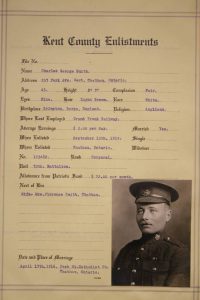 Kent County Enlistments
File No.
Name Charles George Smith.
Address 257 Park Ave. West, Chatham, Ontario.
Age 43. Height 5' 7" Complexion Fair.
Eyes Blue. Hair Light Brown. Race White.
Birthplace London, England. Religion Anglican.
Where Last Employed Grand Trunk Railway.
Average Earnings $ 2.00 per day. Married Yes.
When Enlisted September 1915. Single
Where Enlisted Chatham, Ontario. Widower
No. Corporal.
Unit Battalion.
Allowance from Patriotic Fund $ per month.
Next of Kin
Wife- Mrs. Florence Smith, Chatham.
Date and Place of Marriage
April 17th, Park St. Methodist Ch.
Chatham, Ontario.